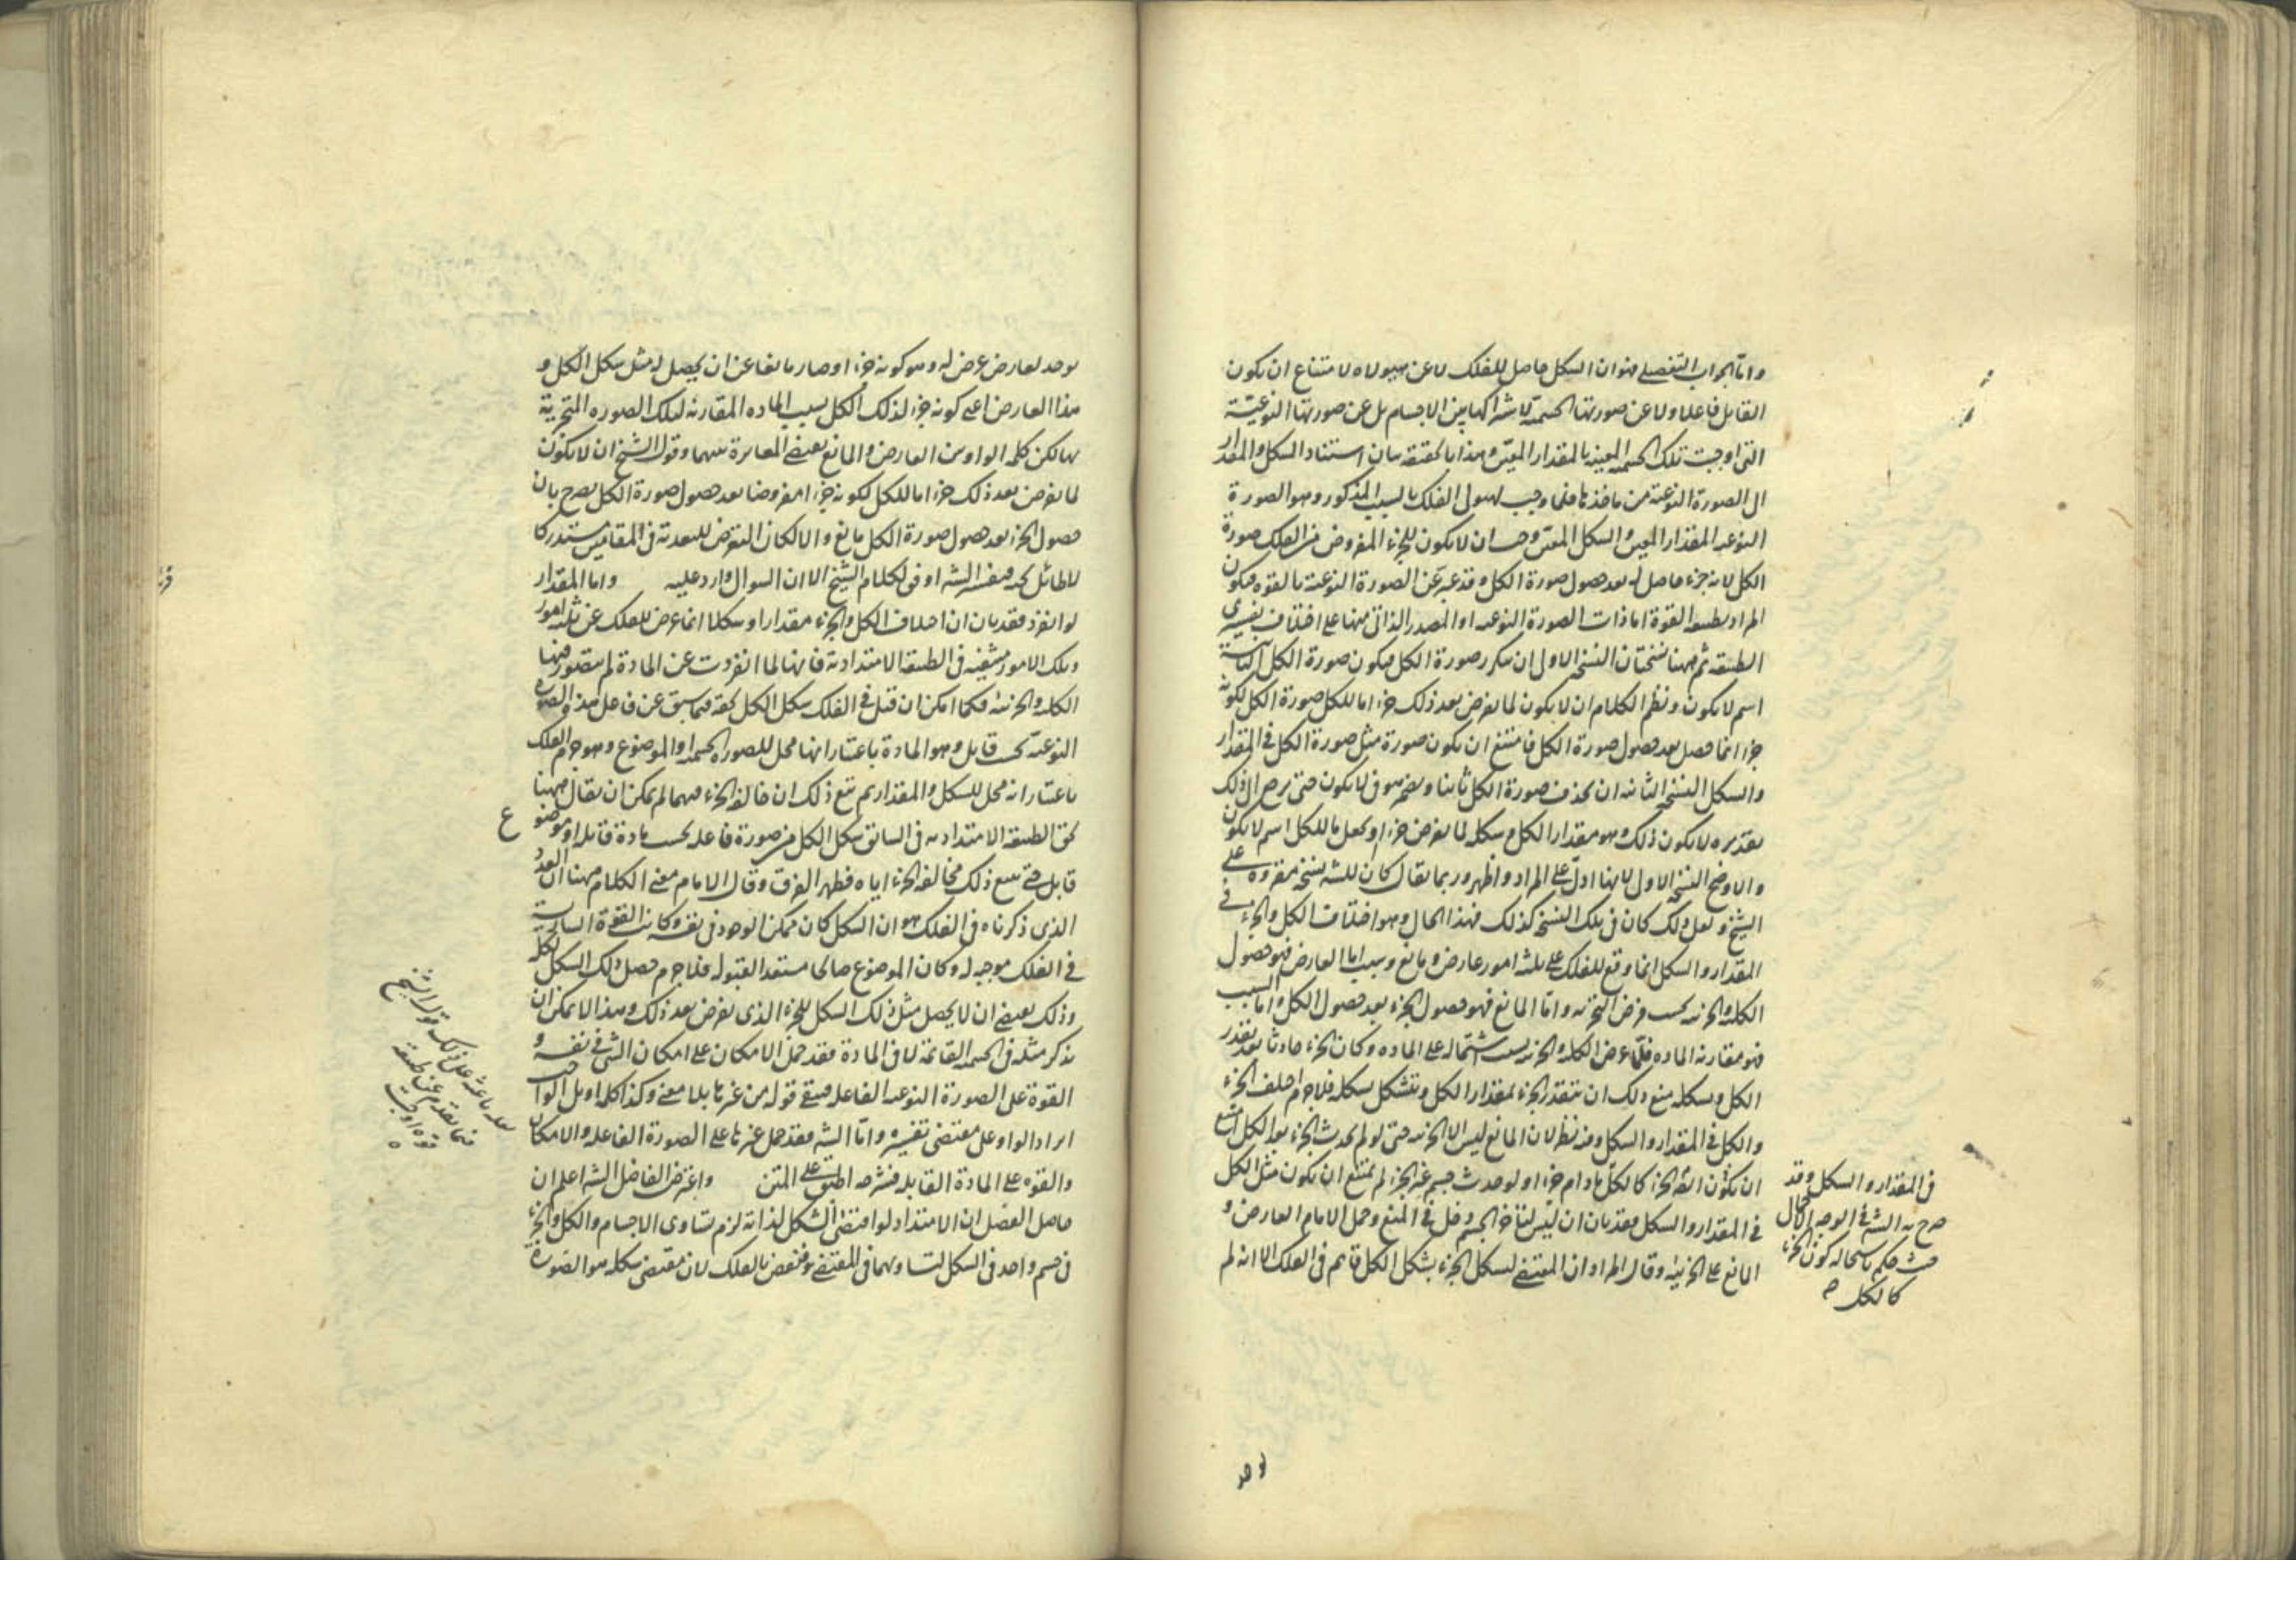 واما الجواب التفصيلى فهو ان الشكل حاصل للفلك لا عن هيولاه لامتناع ان يكون
القابل فاعلا ولا عن صورتها الجسمية لاشتراكها بين الاجسام بل عن صورتها النوعية
التى اوجبت تلك الجسمية المعينة بالمقدار المعين وهذا بالحقيقة بيان استناد الشكل والمقدار
الى الصورة النوعية من ماخذها فلما وجب لهيولى الفلك بالسبب المذكور وهو الصورة
النوعية المقدار المعين والشكل المعين وجب ان لا يكون للجزء المفروض من الفلك صورة
الكل لانه جزء حاصل له بعد حصول صورة الكل وقد عبر عن الصورة النوعية بالقوة فيكون
المراد بطبيعة القوة اما ذات الصورة النوعية او المصدر الذاتى منها على اختلاف تفسيرى
الطبيعة ثم ههنا نسختان النسخة الاولى ان يتكرر صورة الكل فيكون صورة الكل الثانية
اسم لا يكون ونظم الكلام ان لا يكون لما يفرض بعد ذلك جزءا ما للكل صورة الكل لكونه
جزءا انما حصل بعد حصول صورة الكل فامتنع ان يكون صورة مثل صورة الكل فى المقدار
والشكل النسخة الثانية ان يحذف صورة الكل ثانيا ويضمر هو فى لا يكون حتى يرجع الى ذلك
بتقديره لا يكون ذلك وهو مقدار الكل وشكله لما يفرض جزءا او يجعل ما للكل اسم لا يكون
والاوضح النسخة الاولى لانها ادل على المراد واظهر وربما يقال كان للشه نسخة مقروة على
الشيخ ولعل ذلك كان فى تلك النسخ كذلك فهذا الحال وهو اختلاف الكل والجزء فى
المقدار والشكل انما وقع للفلك على ثلثة امور عارض ومانع وسبب اما العارض فهو حصول
الكلية والجزئية بحسب فرض التجزئة واما المانع فهو حصول الجزء بعد حصول الكل واما السبب
فهو مقارنة المادة فلما عرض الكلية والجزئية بسبب اشتماله على المادة وكان الجزء حادثا بعد تقدر
الكل وشكله منع ذلك ان يتقدر الجزء بمقدار الكل ويتشكل بشكله فلا جرم اختلف الجزء
والكل فى المقدار والشكل وفيه نظر لان المانع ليس الا الجزئية حتى لو لم يحدث الجزء بعد الكل امتنع
ان يكون ايضا الجزء كالكل مادام جزءا ولو حدث جسم غير الجزء لم يمتنع ان يكون مثل الكل
فى المقدار والشكل فقد بان ان ليس لتأخر الجسم دخل فى المنع وحمل الامام العارض و
المانع على الجزئية وقال المراد ان المقتضى لشكل الجزء بشكل الكل قايم فى الفلك الا انه لم
فى المقدار والشكل وقد
صرح به الشه فى الوجه الاول
حيث حكم باستحالة كون الجزء
كالكل
يوجد لعارض عرض له وهو كونه جزءا وصار مانعا عن ان يحصل له مثل شكل الكل و
هذا العارض اعنى كونه جزء لذلك الكل بسبب المادة المقارنة لتلك الصورة المتجزية
بها لكن كلمة الواو بين العارض والمانع يقتضى المغايرة بينهما وقول الشيخ ان لا يكون
لما يفرض بعد ذلك جزءا ما للكل لكونه جزءا مفروضا بعد حصول صورة الكل يصرح بان
حصول الجزء بعد حصول صورة الكل مانع والا لكان التعرض للبعدية فى المقامين مستدركا
لا طائل تحته فتفسير الشه اوفق لكلام الشيخ الا ان السوال وارد عليه واما المقدار
لو انفرد فقد بان ان اختلاف الكل والجزء مقدارا وشكلا انما عرض للفلك عن ثلثة امور
وتلك الامور منتفية فى الطبيعة الامتدادية فانها لما انفردت عن المادة لم يتصور فيها
الكلية والجزئية فكما امكن ان قيل فى الفلك شكل الكل كيفية فيما سبق عن فاعل هذه الصورة
النوعية بحسب قابل وهو المادة باعتبار انها محل للصورة الجسمية او الموضوع وهو جرم الفلك
باعتبار انه محل للشكل والمقدار ثم يتبع ذلك ان خالفه الجزء فيهما لم يمكن ان يقال ههنا
لحق الطبيعة الامتدادية فى السابق شكل الكل من صورة فاعلة بحسب مادة قابلة او موضوع
قابل حتى يتبع ذلك مخالفة الجزء اياه فظهر الفرق وقال الامام معنى الكلام ههنا ان العذر
الذى ذكرناه فى الفلك هو ان الشكل كان ممكن الوجود فى نفسه وكانت القوة السارية
فى الفلك موجبة له وكان الموضوع صالحا مستعدا لقبوله فلا جرم حصل ذلك الشكل لكله
وذلك يقتضى ان لا يحصل مثل ذلك الشكل للجزء الذى يفرض بعد ذلك وهذا لا يمكن ان
يذكر مثله فى الجسمية القائمة لا فى المادة فقد حمل الامكان على امكان الشى فى نفسه و
القوة على الصورة النوعية الفاعلة فبقى قوله من غيرها بلا معنى وكذا كلمة او بل الواجب
ايراد الواو على مقتضى تفسيره واما الشه فقد حمل غيرها على الصورة الفاعلة والامكان
والقوة على المادة القابلة فشرحه اطبق على المتن واعترض الفاضل الشه اعلم ان
حاصل الفصل ان الامتداد لو اقتضى الشكل لذاته لزم تساوى الاجسام والكل والجزء
فى جسم واحد فى الشكل لتساويهما فى المقتضى ونقض بالفلك لان مقتضى شكله هو الصورة
ع